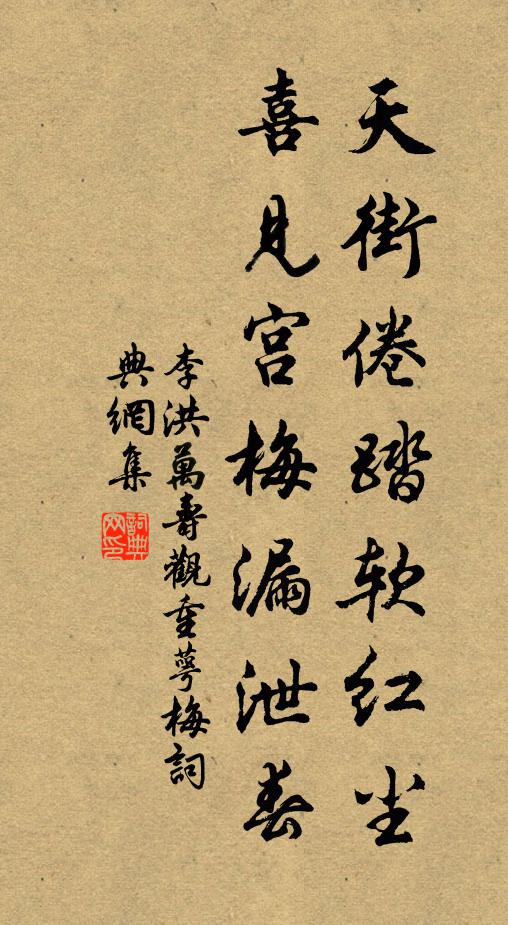 天街倦踏软红尘
喜见宫梅漏泄春
李洪萬壽觀重萼梅詞
典網集
詞典网印